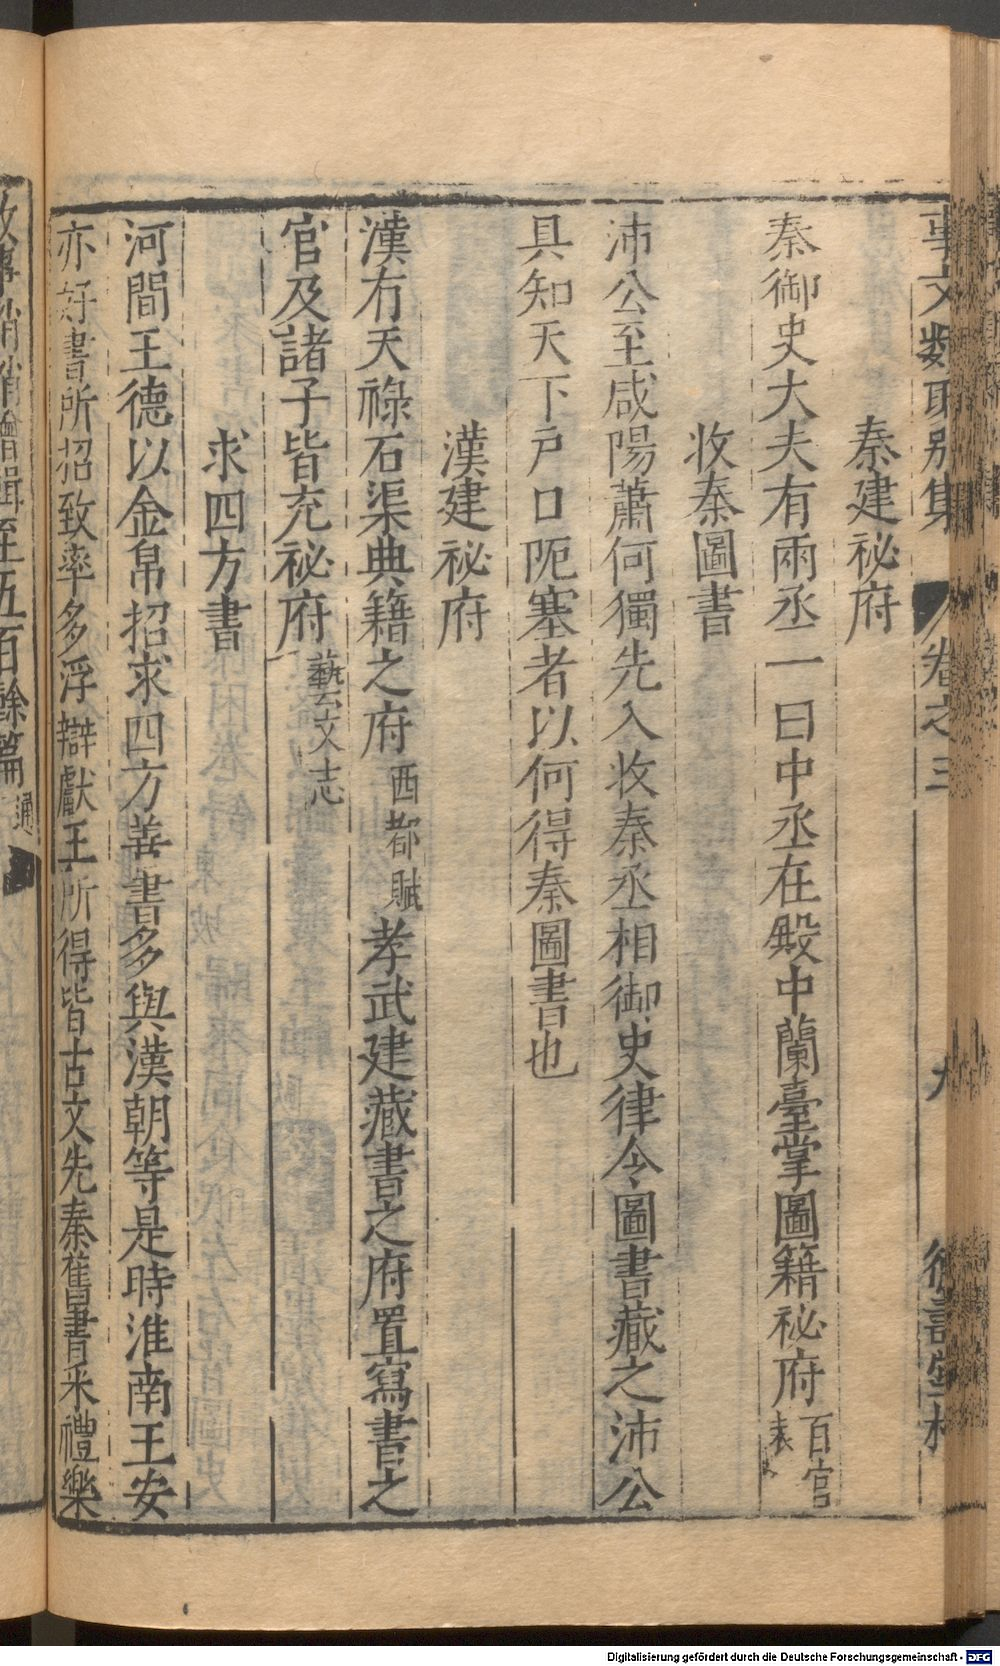 事文類聚別集 卷之三 九
秦建祕府
秦御史大夫有兩丞一曰中丞在殿中蘭臺掌圖籍祕府百官表
收秦圖書
沛公至咸陽蕭何獨先入收秦丞相御史律令圖書藏之沛公
具知天下户口阨塞者以何得秦圖書也
漢建祕府
漢有天祿石渠典籍之府西都賦孝武建藏書之府置寫書之
官及諸子皆充祕府藝文志
求四方書
河間王德以金帛招求四方善書多與漢朝等是時淮南王安
亦好書所招致率多浮辯獻王所得皆古文先秦舊書采禮樂
至五百餘篇通
Digitalisierung gefördert durch die Deutsche Forschungsgemeinschaft - DFG